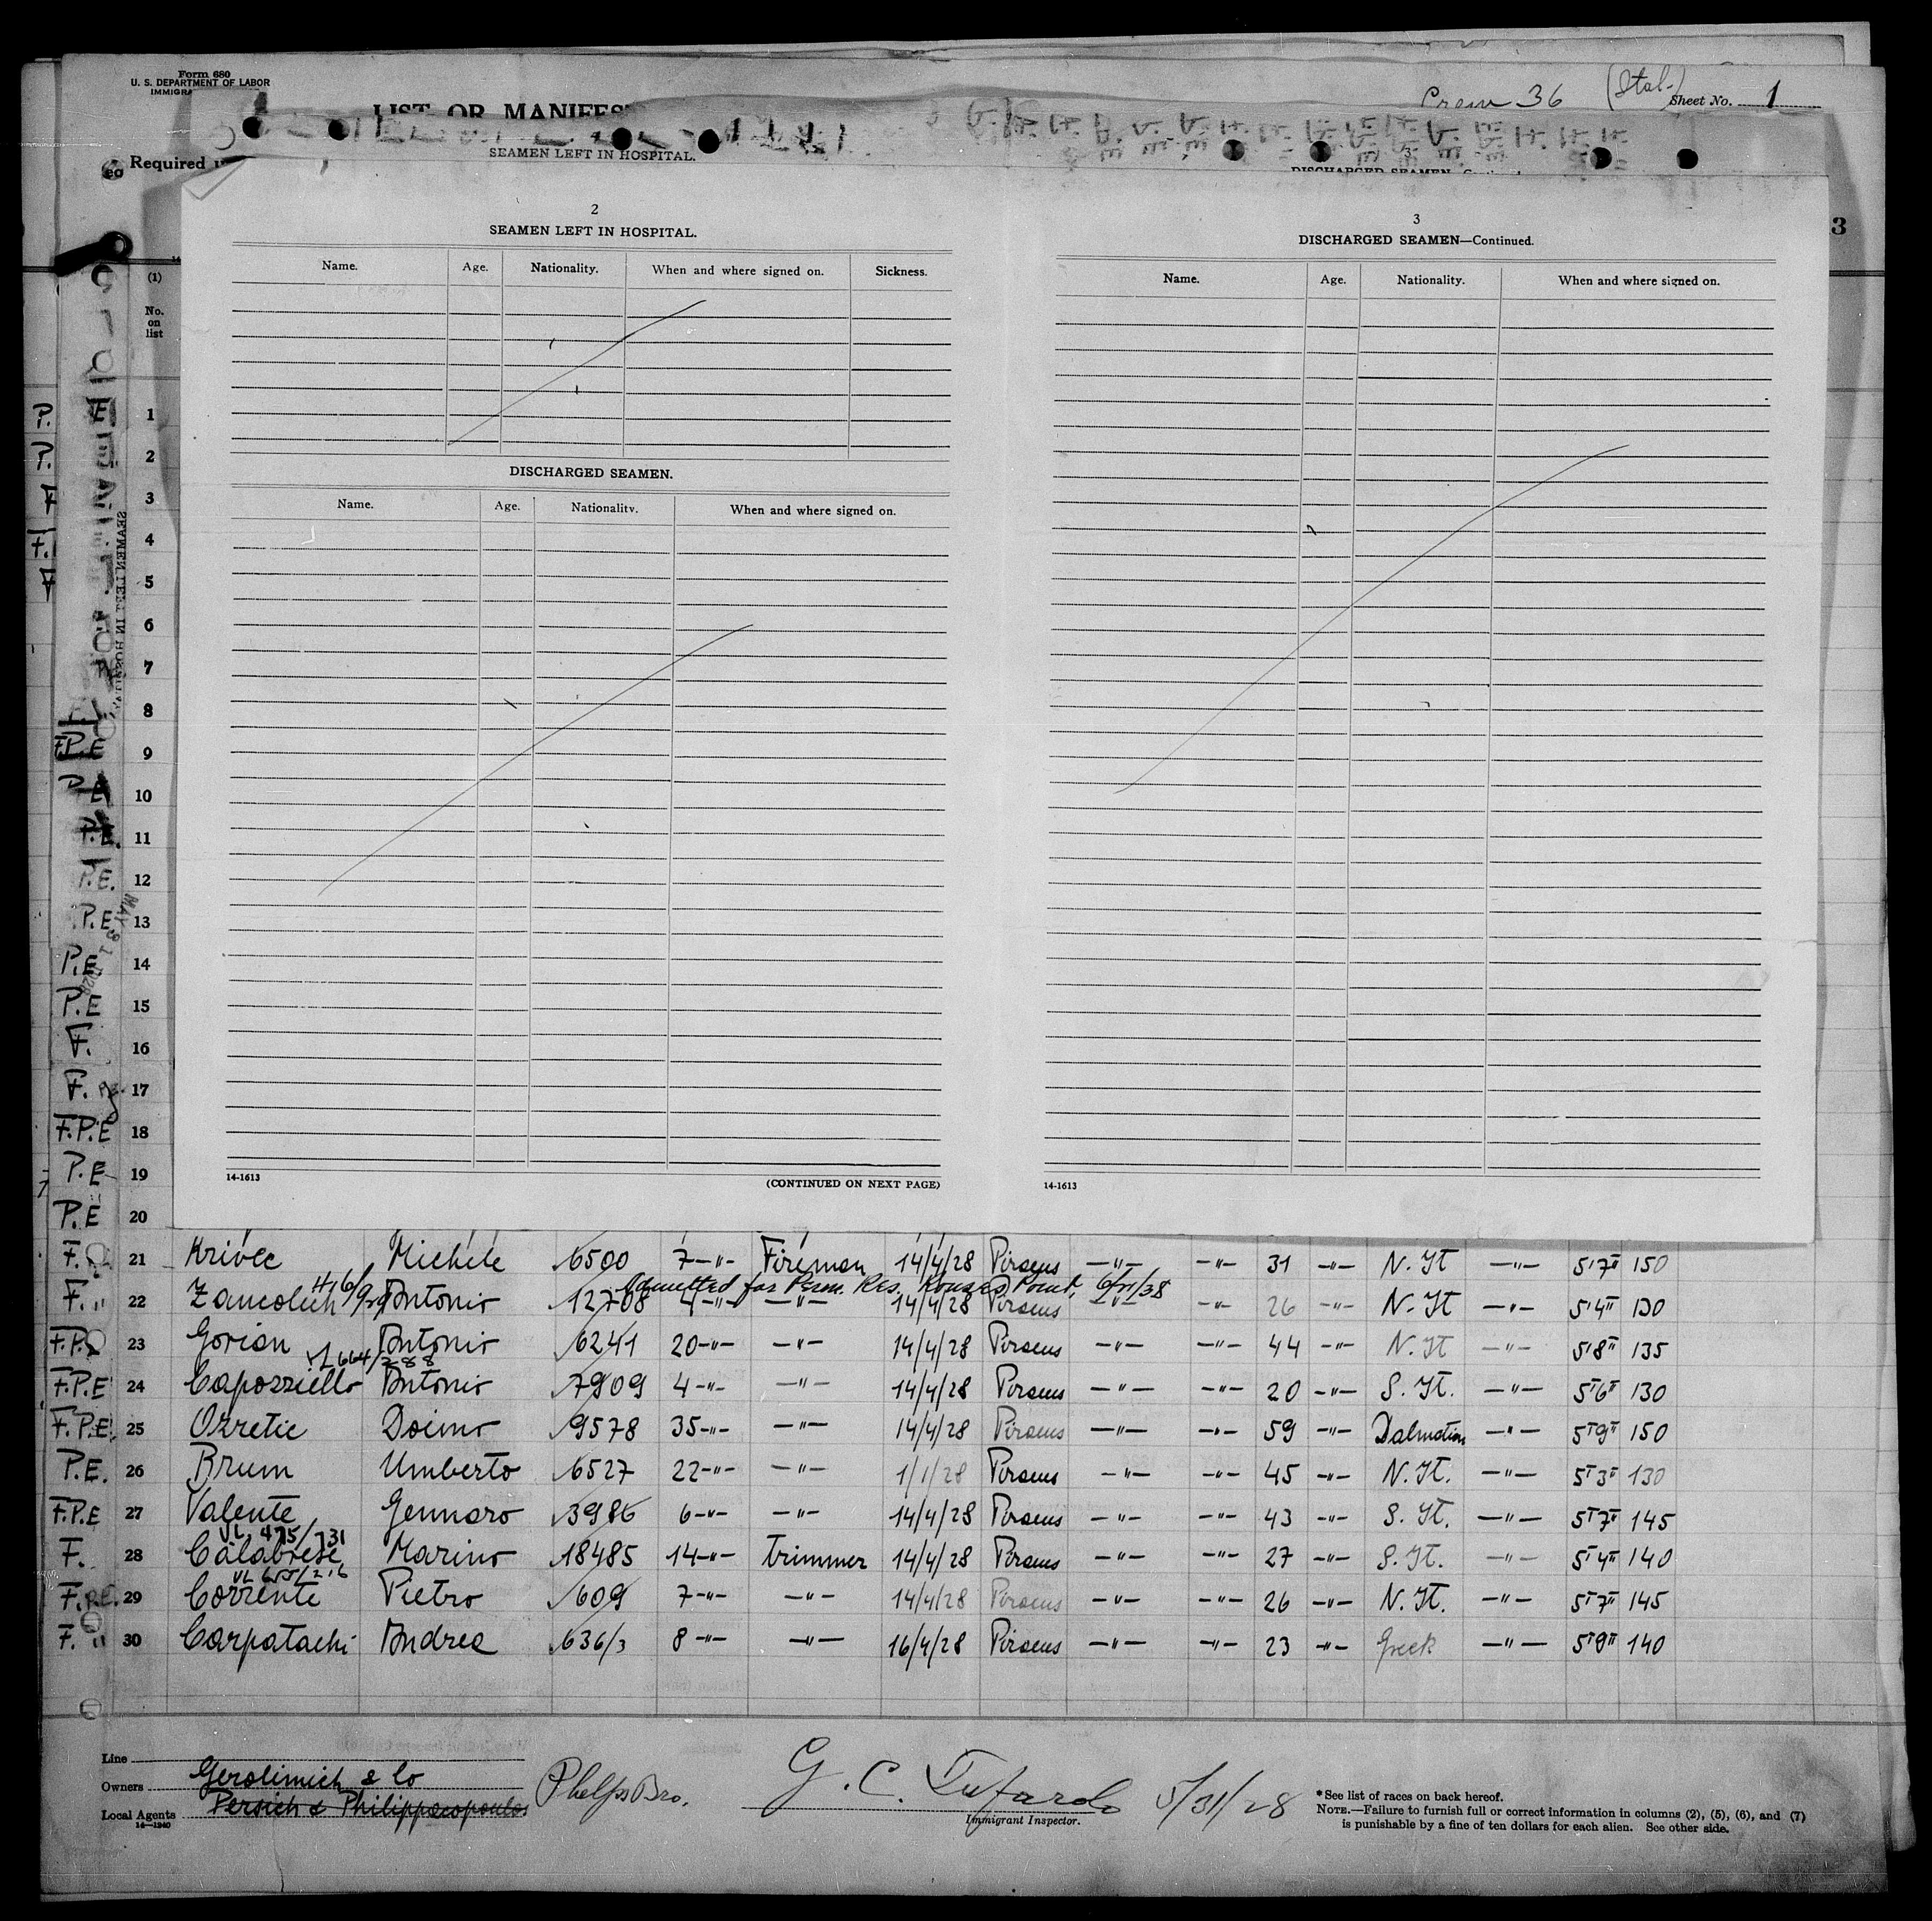 Form 680
U. S. DEPARTMENT OF LABOR
LIST OR MANIFES
Crew 36 (Ital.) Sheet No. 1
SEAMEN LEFT IN HOSPITAL.
3
Required
2
SEAMEN LEFT IN HOSPITAL.
Name. Age. Nationality. When and where signed on. Sickness.
DISCHARGED SEAMEN.
Name. Age. Nationality. When and where signed on.
14-1613 (CONTINUED ON NEXT PAGE)
3
DISCHARGED SEAMEN—Continued.
Name. Age. Nationality. When and where signed on.
14-1613
3
(1)
No.
on
list
P. E 1
P. 2
F 3
F. 4
F 5
6
7
8
F.P.E 9
P.E 10
P.E. 11
P.E. 12
P.E. 13
P.E 14
P.E 15
F. 16
F. 17
F.P.E 18
P.E 19
P.E 20
SEAMEN LEFT IN HOSPITAL
MAY 31 1928
F. 21 Krivec Michele 6500 7 -"- Fireman 14/4/28 Piraeus -"- -"- 31 -"- N. It -"- 5'7" 150
Admitted for Perm. Res. Rouses Point, 6/21/38
F. " 22 Zancolich Antonio 12708 4 -"- -"- 14/4/28 Piraeus -"- -"- 26 -"- N. It -"- 5'4" 130
F.P. 23 Gorian Antonio 6241 20 -"- -"- 14/4/28 Piraeus -"- -"- 44 -"- N. It -"- 5'8" 135
VL 664/288
F.P.E 24 Capozziello Antonio 7909 4 -"- -"- 14/4/28 Piraeus -"- -"- 20 -"- S. It. -"- 5'6" 130
F.P.E. 25 Ozretic Doimo 9578 35 -"- -"- 14/4/28 Piraeus -"- -"- 59 -"- Dalmatian -"- 5'9" 150
P.E. 26 Brum Umberto 6527 22 -"- -"- 1/1/28 Piraeus -"- -"- 45 -"- N. It. -"- 5'3" 130
F.P.E 27 Valente Gennaro 3986 6 -"- -"- 14/4/28 Piraeus -"- -"- 43 -"- S. It. -"- 5'7" 145
VL 475/731
F. 28 Calabrese Marino 18485 14 -"- Trimmer 14/4/28 Piraeus -"- -"- 27 -"- S. It. -"- 5'4" 140
VL 655/216
F. P.E. 29 Corrente Pietro 609 7 -"- -"- 14/4/28 Piraeus -"- -"- 26 -"- N. It. -"- 5'7" 145
F. " 30 Carpatachi Andrea 636/3 8 -"- -"- 16/4/28 Piraeus -"- -"- 23 -"- Greek -"- 5'8" 140
Line
Owners Gerolimich & Co
Local Agents Persich & Philippacopoulos Phelps Bro.
14—1240
G. C. Tufarolo 5/31/28
Immigrant Inspector.
*See list of races on back hereof.
NOTE.—Failure to furnish full or correct information in columns (2), (5), (6), and (7)
is punishable by a fine of ten dollars for each alien. See other side.